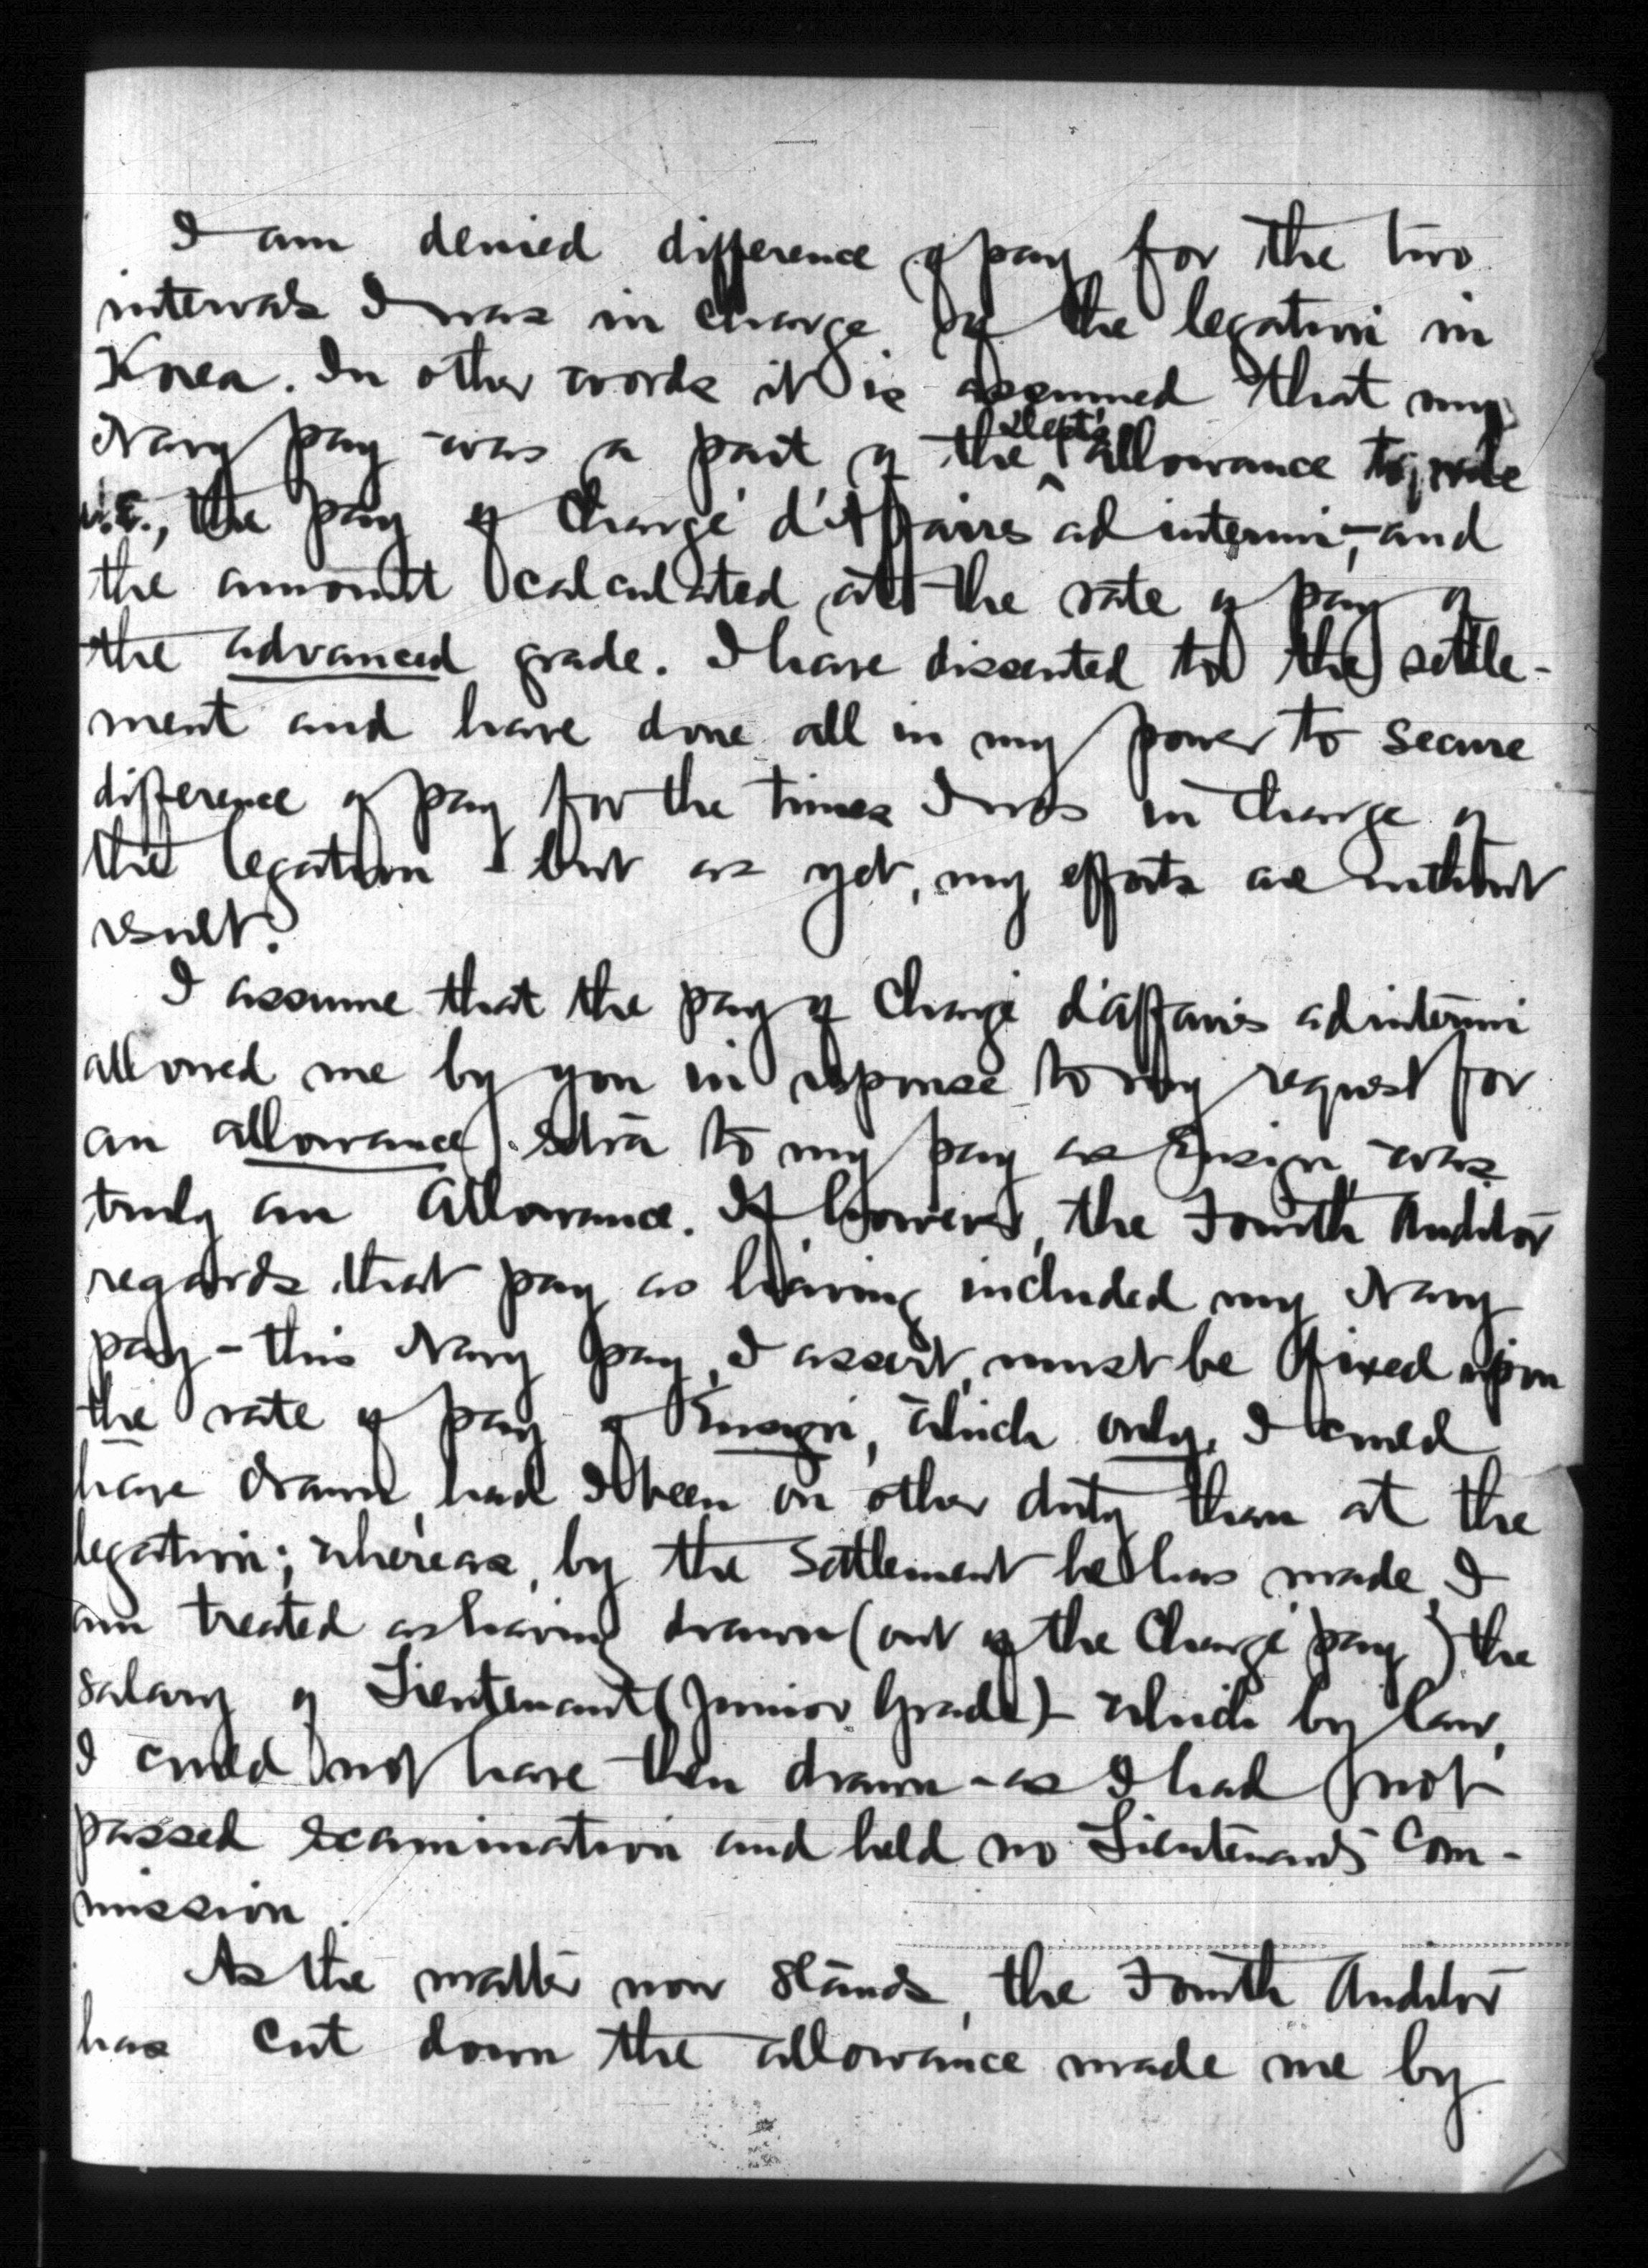 I am denied difference of pay for the two
intervals I was in charge of the legation in
Korea. In other words it is assumed that my
Navy pay was a part of the Dept's allowance to, 
i.e., the pay of Chargé d'Affaires ad interim,- and
the amount calculated at the rate of pay of
the advanced grade. I have dissented to the settle-
ment and have done all in my power to secure
difference of pay for the times I was in charge of
the legation - but as yet, my efforts are without
result.
I assume that the pay of Chargé d'affaires ad interim
allowed me by you in response to my request for
an allowance extra to my pay as Ensign was
truly an allowance. If, however, the Fourth Auditor
regards that pay as having included my Navy
pay - this Navy pay, I assert, must be fixed upon
the rate of pay of Ensign, which only, I could
have drawn, had I been on other duty than at the
legation; whereas, by the settlement he has made, I
am treated as having drawn (out of the Chargé pay) the
salary of Lieutenant (Junior Grade) - which by law,
I could not have then drawn - as I had not
passed examination and held no Lieutenant's Com-
mission.
As the matter now stands, the Fourth Auditor
has cut down the allowance made me by